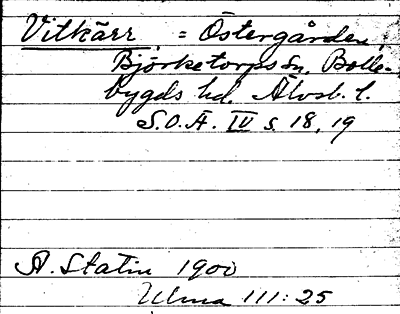 Vitkärr, = Östergården,
Björketorps sn, Bolle-
bygds hd. Älvsb. l.
S.O.Ä. IV s. 18, 19
A. Statin 1900
Ulma 111:25